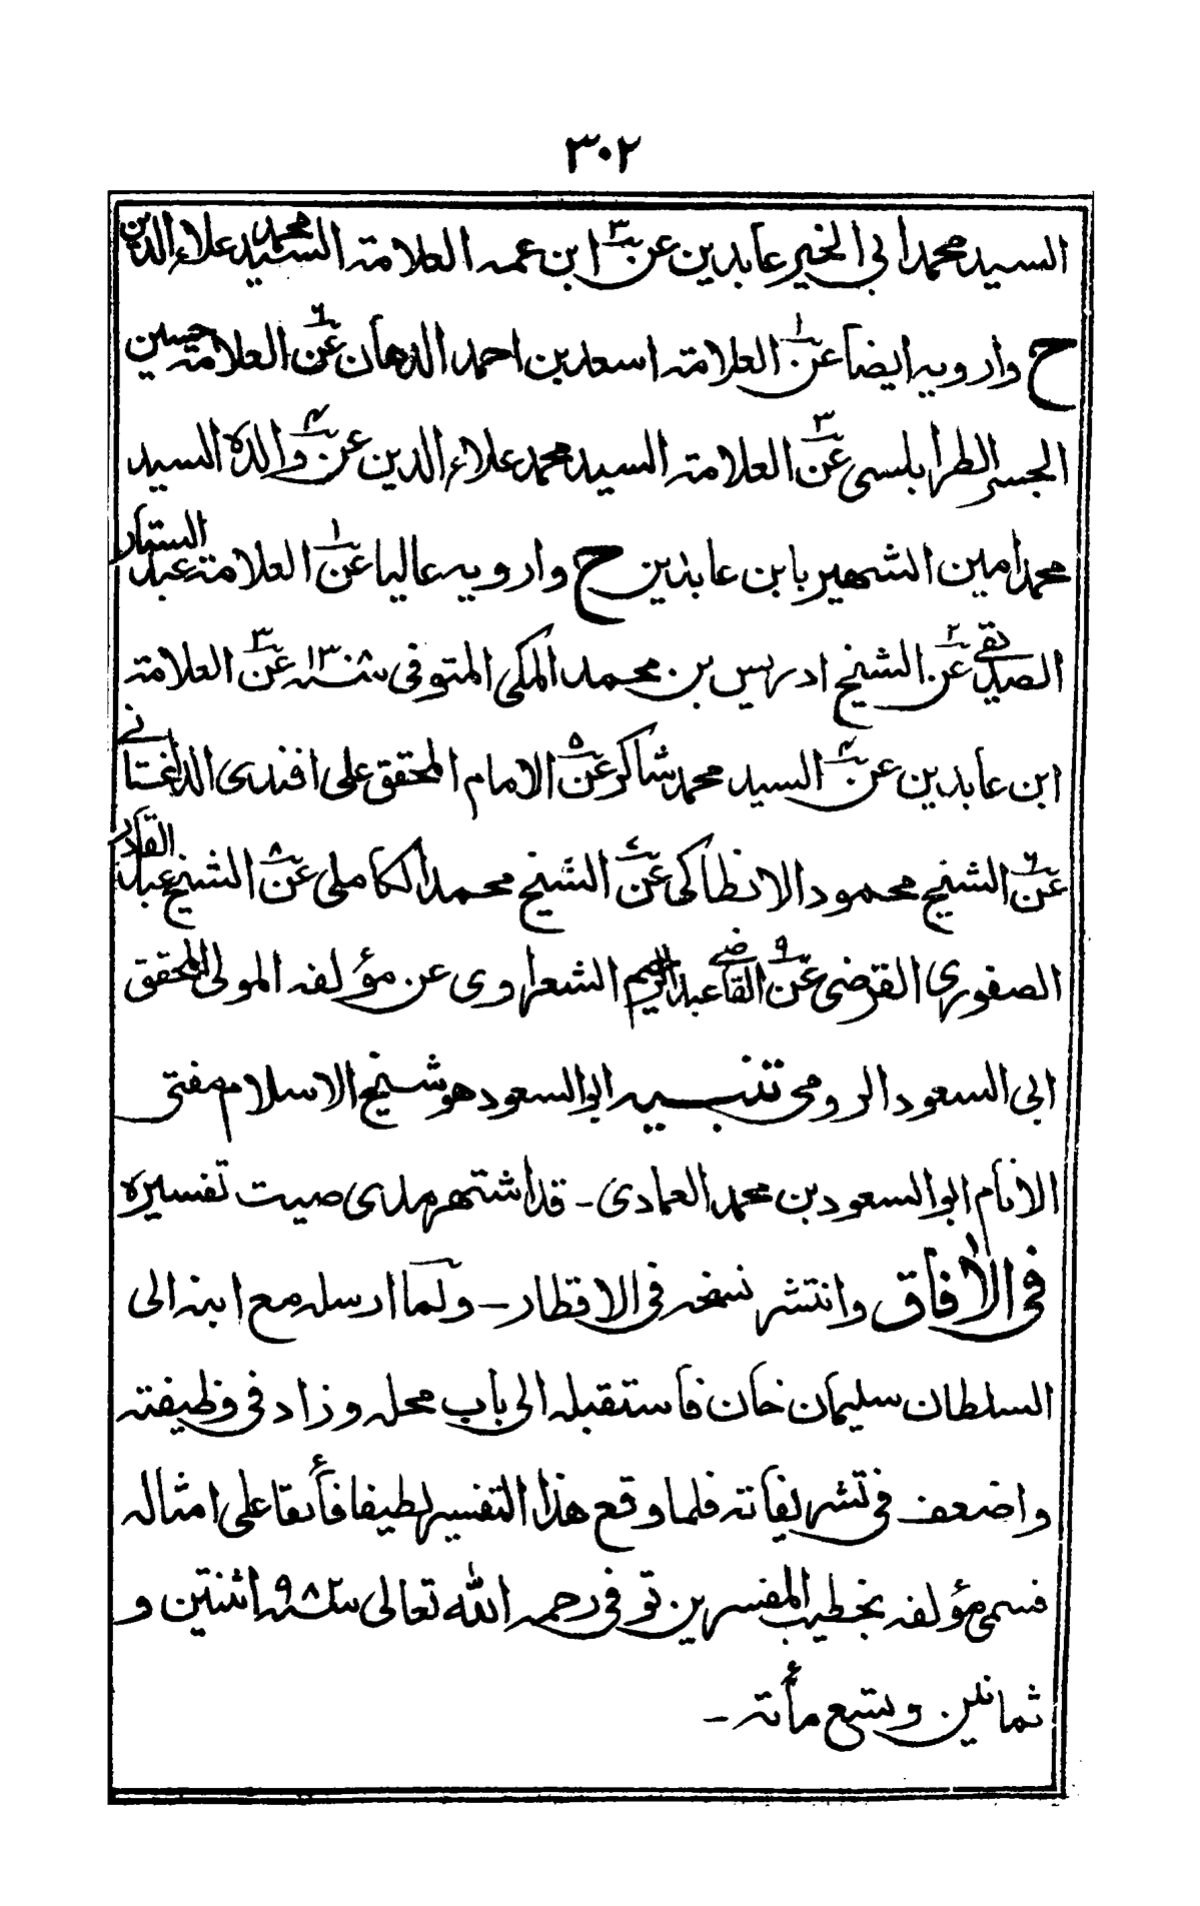 ٣٠٢
السيد محمد ابى الخير عابدين عن٣ ابن عمه العلامة السيد محمد علاء الدين
ح وارويه ايضا عن١ العلامة اسعد بن احمد الدهان عن٢ العلامة حسين
الجسر الطرابلسى عن٣ العلامة السيد محمد علاء الدين عن٤ والده السيد
محمد امين الشهير بابن عابدين ح وارويه عاليا عن١ العلامة عبد الستار
الصديقى عن٢ الشيخ ادريس بن محمد المكى المتوفى سنه ١٣٠٨ عن٣ العلامة
ابن عابدين عن٤ السيد محمد شاكر عن٥ الامام المحقق على افندى الداغستانے
عن٦ الشيخ محمود الانطاكى عن٧ الشيخ محمد الكاملى عن٨ الشيخ عبد القادر
الصفورى القرضى عن٩ القاضے عبد الرحيم الشعراوى عن مؤلفه المولى المحقق
ابى السعود الرومى تنبيه ابو السعود هو شيخ الاسلام مفتى
الانام ابو السعود بن محمد العمادى ـ قد اشتهر مدى صيت تفسيره
فى الأفاق وانتشر نسخه فى الاقطار ـ ولما ارسله مع ابنه الى
السلطان سليمان خان فاستقبله الى باب محله وزاد فى وظيفته
واضعف فى تشريفاته فلما وقع هذا التفسير لطيفا فأيقا على امثاله
فسمى مؤلفه بخطيب المفسرين توفى رحمه الله تعالى سنه ٩٨٢ اثنتين و
ثمانين وتسع مأئة ـ